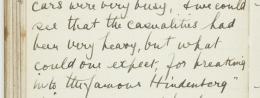 cars were very busy. & we could
see that the casualities had
been very heavy, but what
could one expect, for breaking
into "the famous Hindenberg"